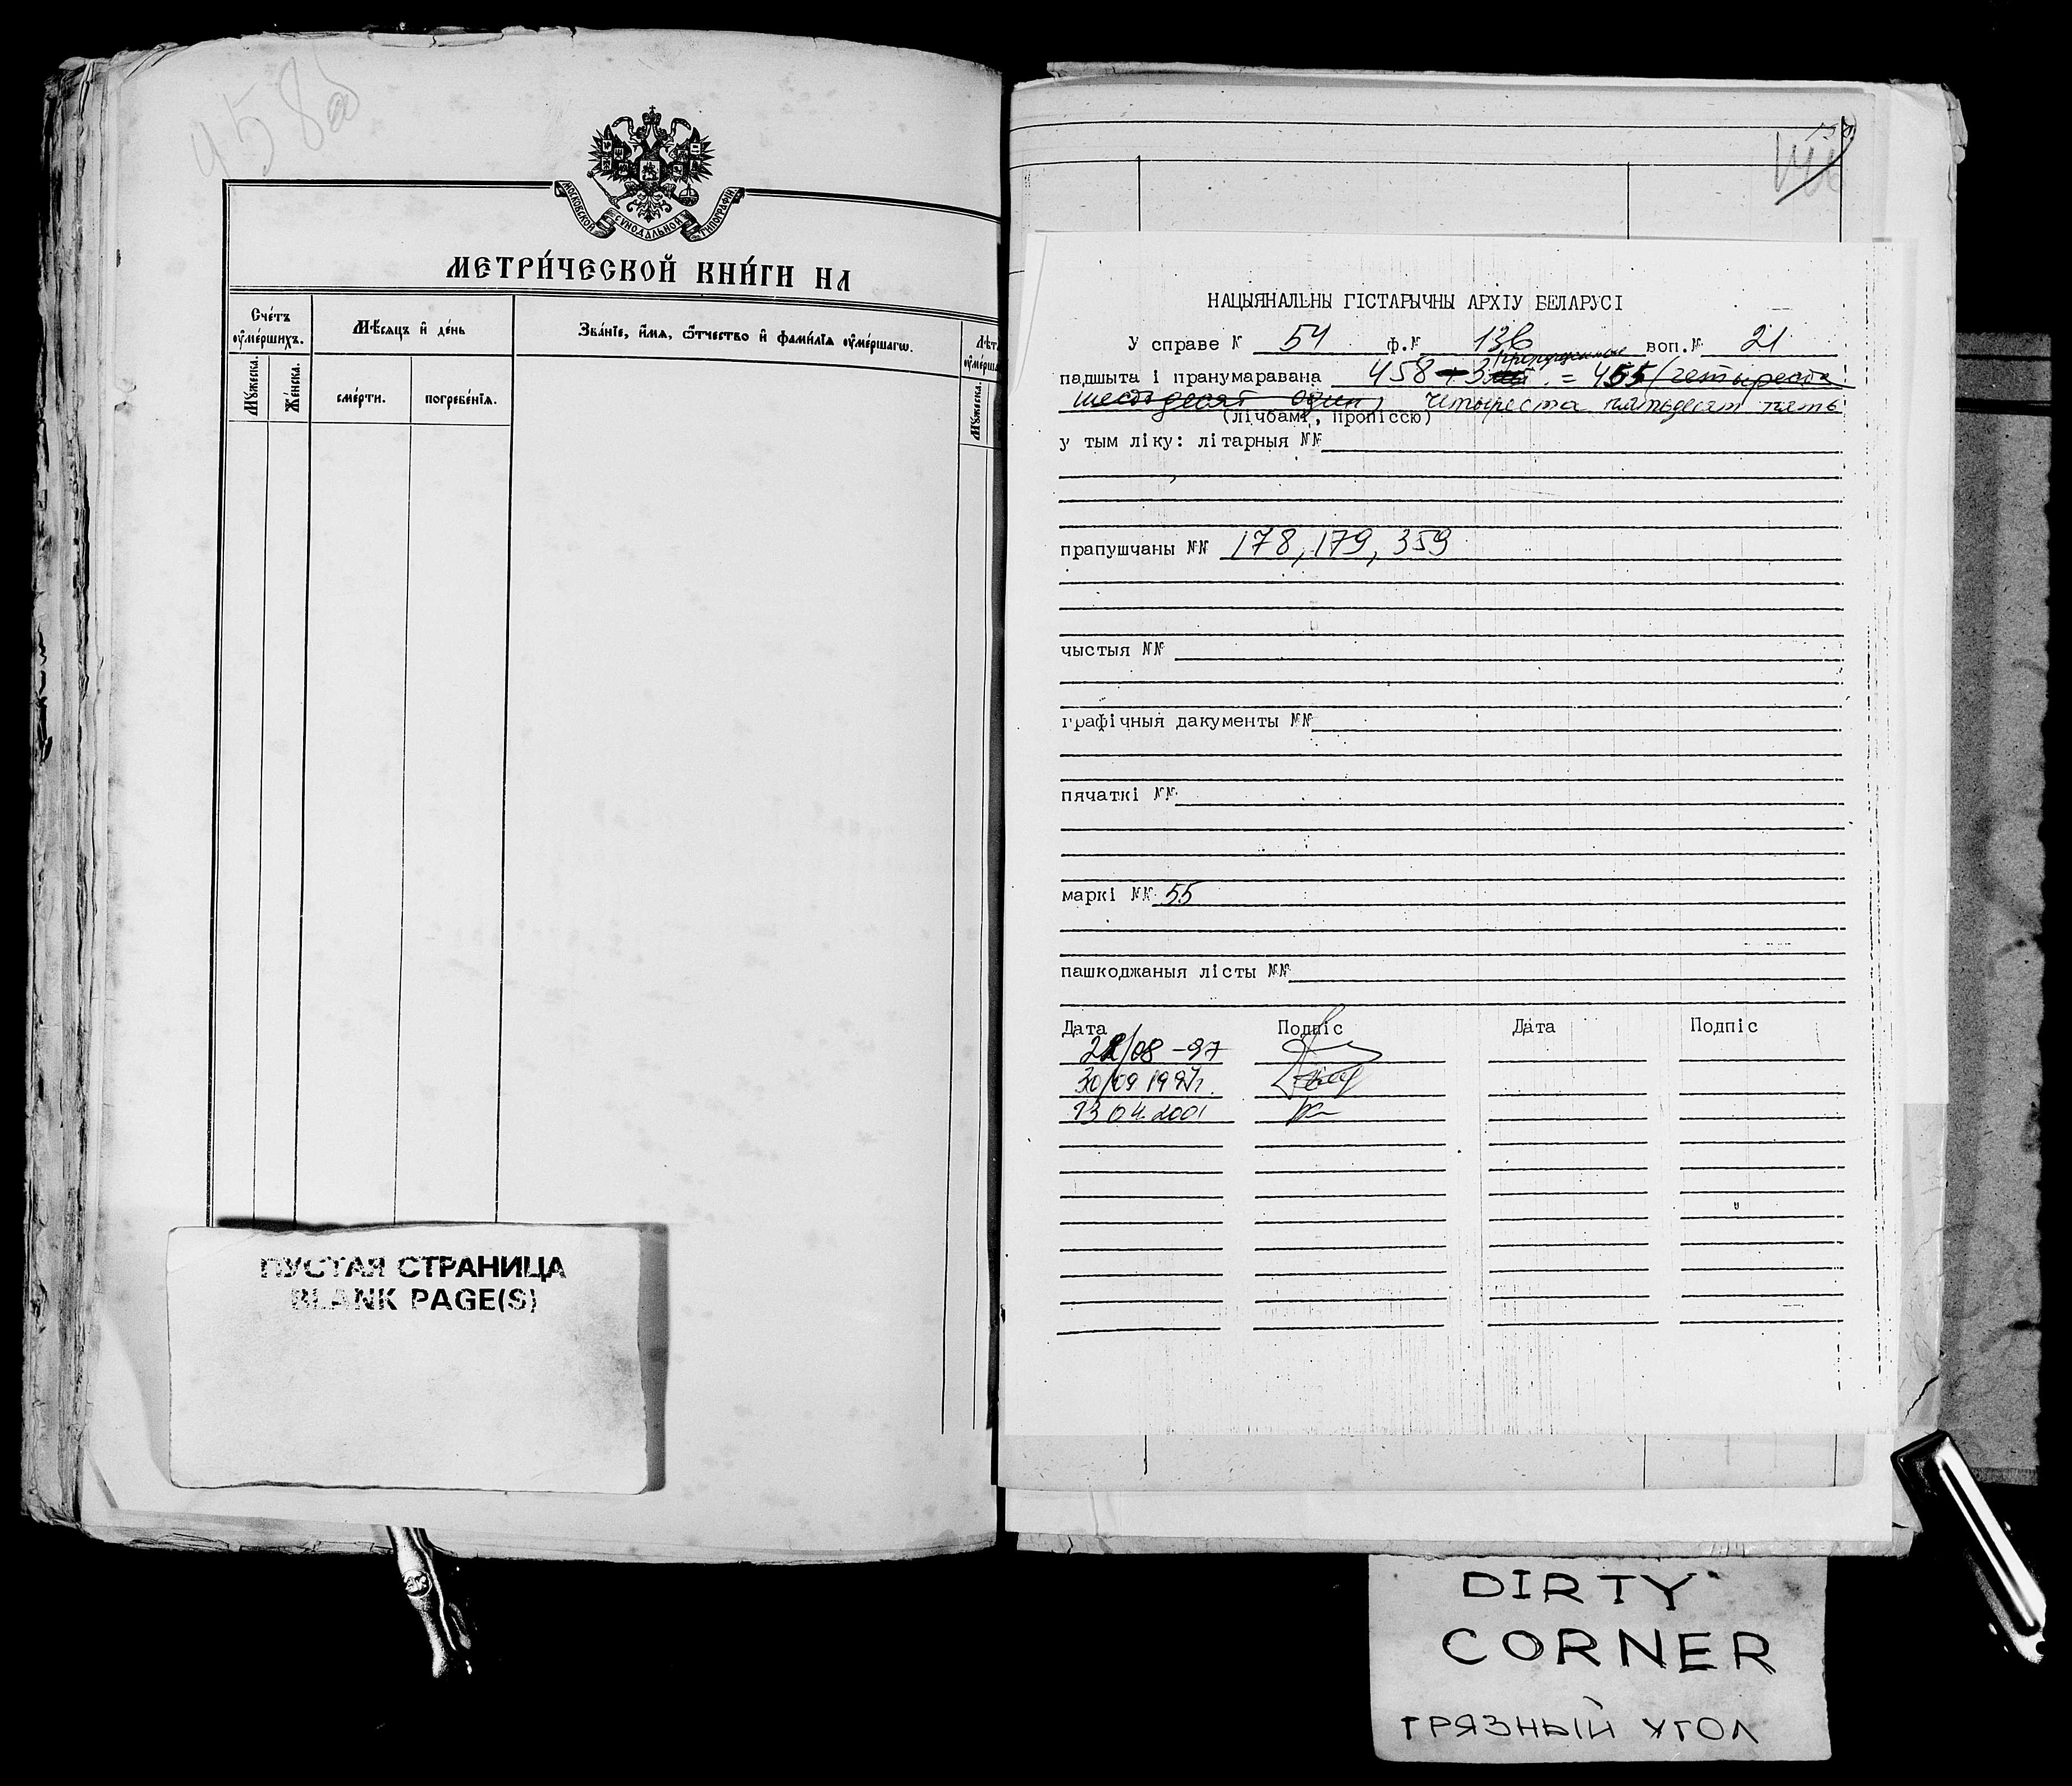 458об
МОСКОВСКОЙ СѴНОДАЛЬНОЙ ТИПОГРАФІИ
МЕТРИ́ЧЕСКОЙ КНИ́ГИ НА
Сче́тъ оу҆ме́ршихъ.
Мѣ́сяцъ и҆ де́нь
Зва́нїе, и҆́мя, ѻ҆́тчество и҆ фами́лїя оу҆ме́ршагѡ.
Мꙋ́жеска.
Же́нска.
сме́рти.
погребе́нїя.
Мꙋ́жеска.
ПУСТАЯ СТРАНИЦА
BLANK PAGE(S)
НАЦЫЯНАЛЬНЫ ГІСТАРЫЧНЫ АРХІУ БЕЛАРУСІ
У справе № 54 ф.№ 136 воп.№ 21
падшыта і пранумаравана 458 - 3 пропущенные = 455 /четыреста
шестьдесят один/ четыреста пятьдесят пять
(лічбамі, пропіссю)
у тым ліку: літарныя №№
прапушчаны №№ 178, 179, 359
чыстыя №№
графічныя дакументы №№
пячаткі №№
маркі №№ 55
пашкоджаныя лісты №№
Дата Подпіс Дата Подпіс
22/08 -97
30/09 1997г.
13 04. 2001
DIRTY
CORNER
ГРЯЗНЫЙ УГОЛ